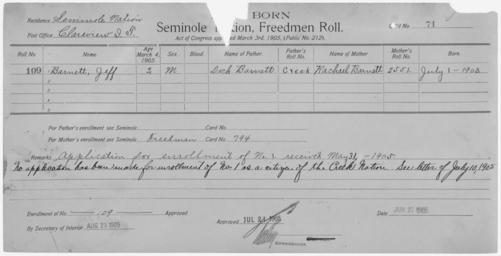 BORN
Residence Seminole Nation
Seminole Nation, Freedmen Roll.
Card No. 71
Post Office, Clearview I.T.
Act of Congress approved March 3rd, 1905, (Public No. 212).
Roll No. Name Age March 4, 1905 Sex. Blood. Name of Father. Father's Roll No. Name of Mother Mother's Roll No. Born.
109 Barnett, Jeff 2 M Dock Barnett Creek Rachael Barnett 2551 July 1 - 1902
2
3
4
5
For Father's enrollment see Seminole Card No.
For Mother's enrollment see Seminole Freedman Card No. 794
Remarks Application for enrollment of No 1 received May 31, - 1905
No application has been made for enrollment of No 1 as a citizen of the Creek Nation. See letter of July 10, 1905
Enrollment of No. 109 Approved
Approved JUL 1905
Date 1905
By Secretary of Interior AUG 1905